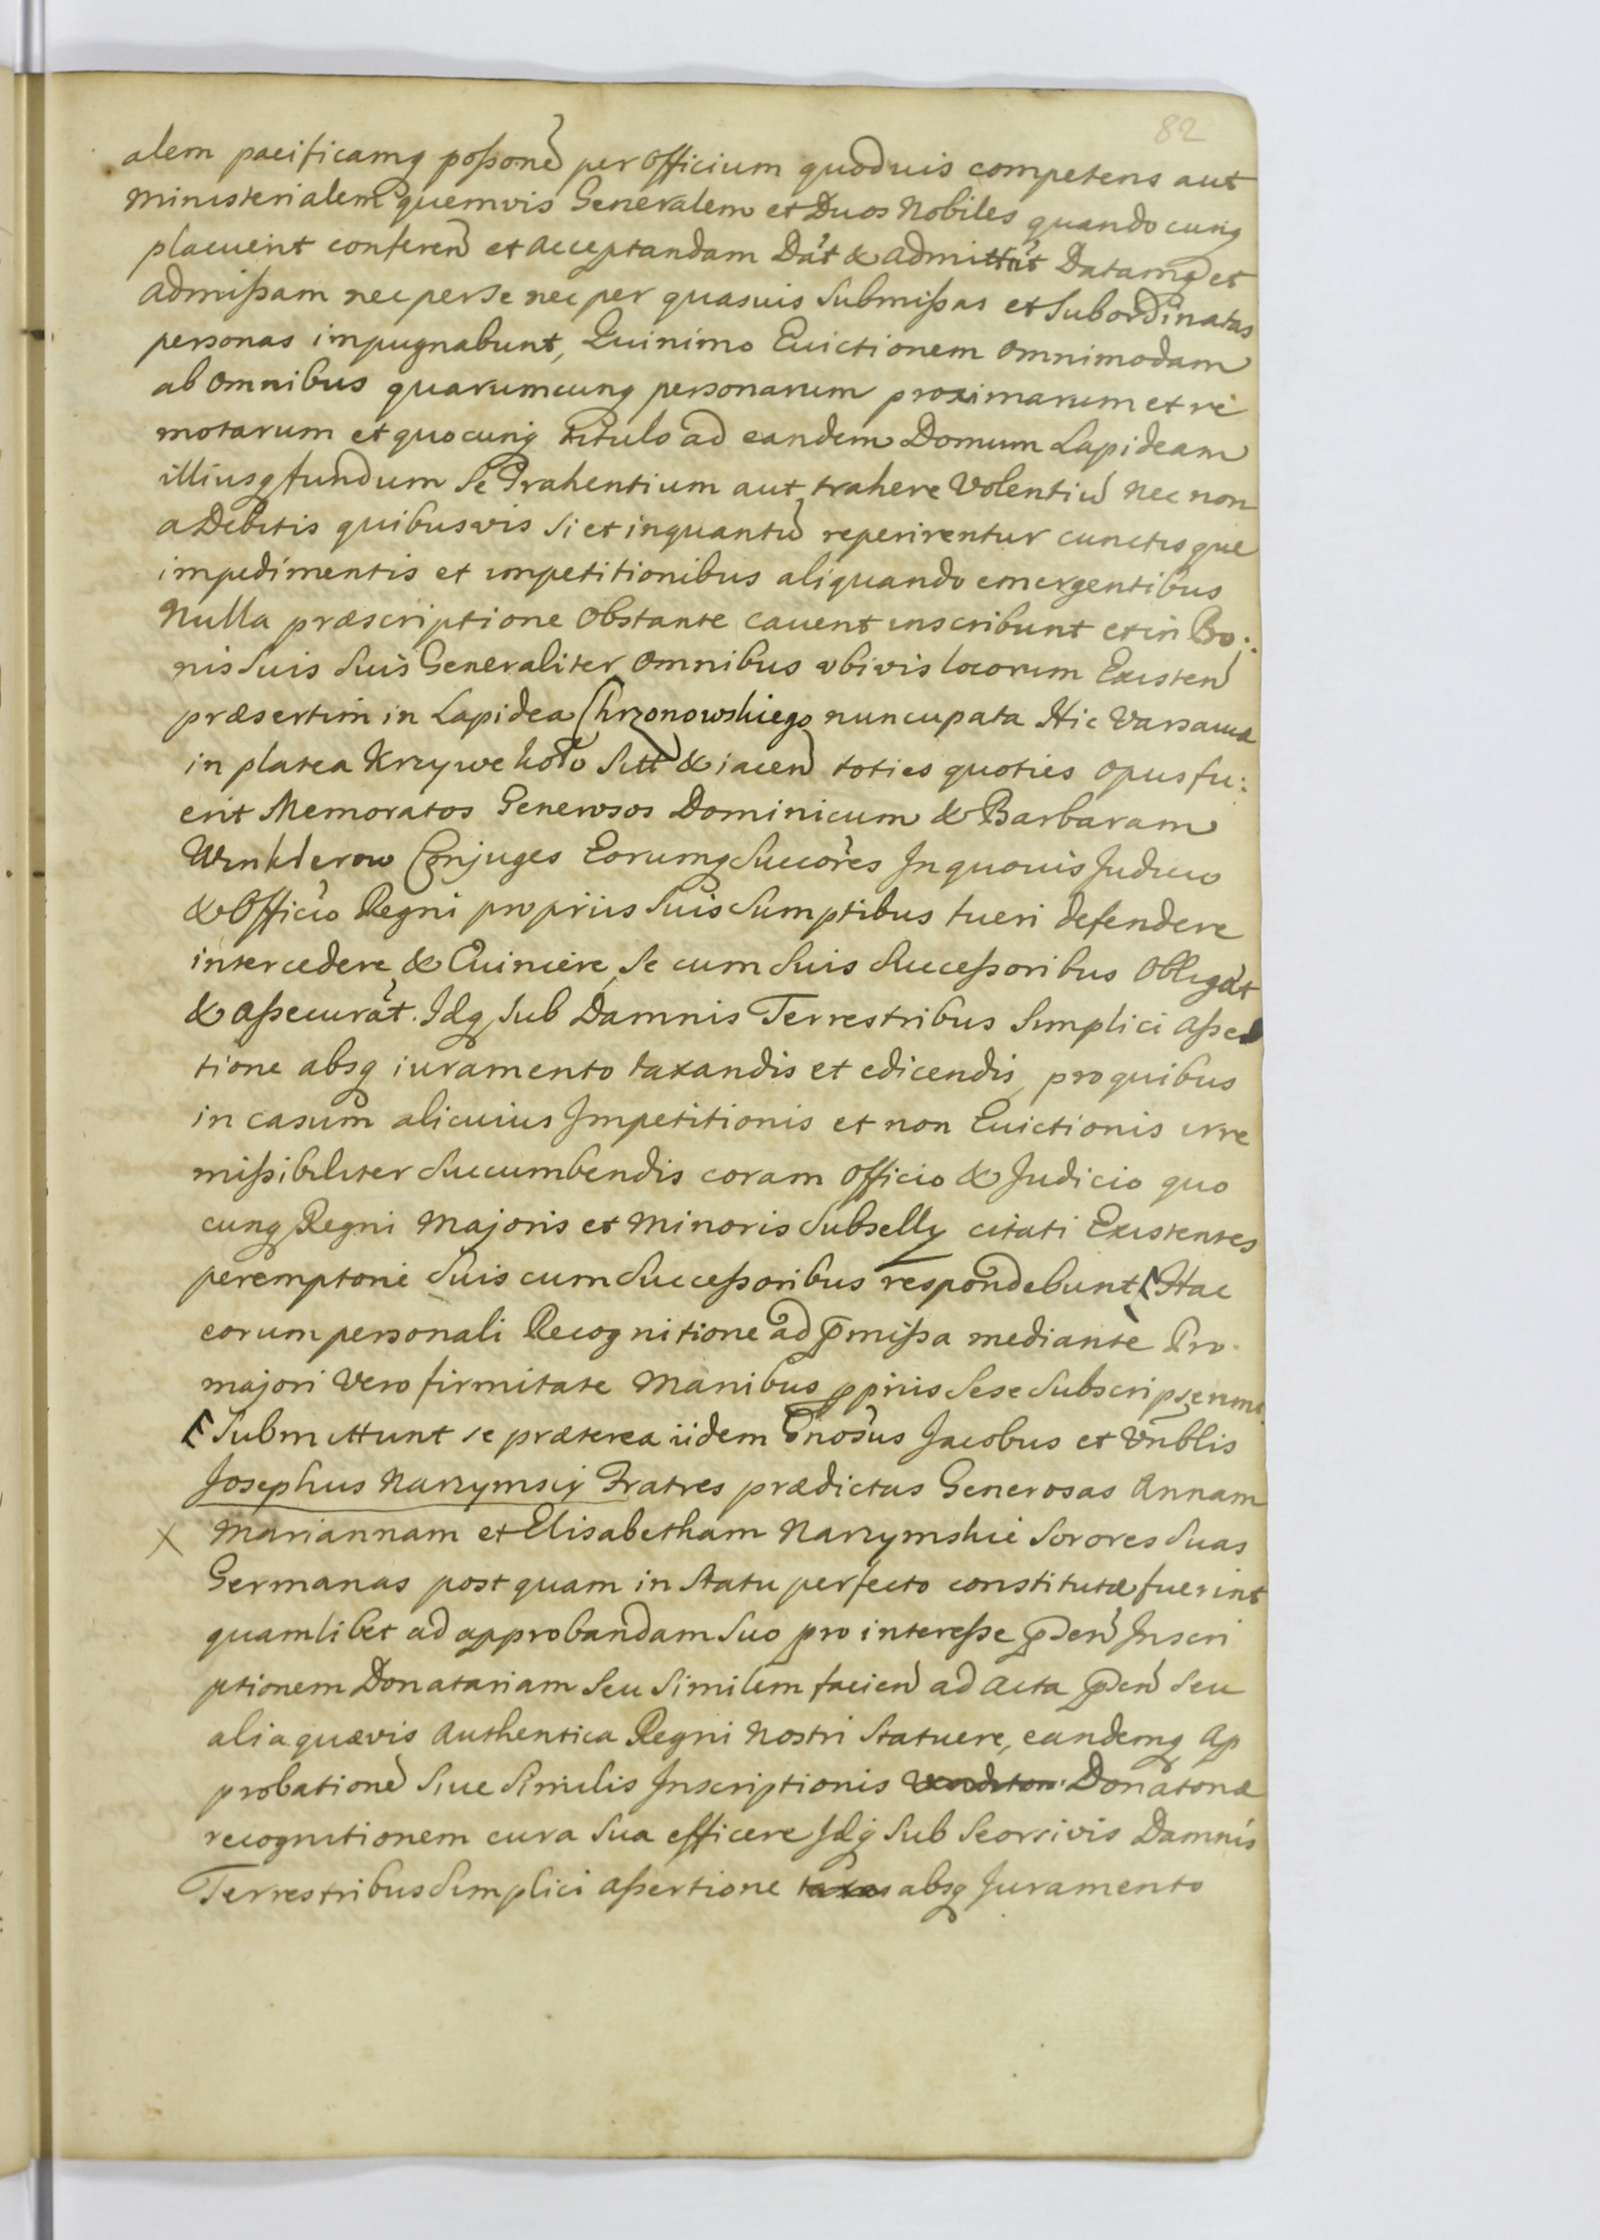 82
alem pacificamq poßone per Officium quoduis competens aut
Ministerialem quemvis Generalem et Duos Nobiles quando cunq
placuerit conferen et Acceptandam Dat & admittut Datamq et
admißam nec per se nec per quasuis Submißas et Subordinatas
personas impugnabunt, Quinimo Euictionem omnimodam
ab omnibus quarumcunq personarum proximarum et re
motarum et quocunq titulo ad eandem Domum Lapideam
illiusq fundum Se Trahentium aut trahere Volentiu nec non
a Debitis quibusvis si et inquantu reperirentur cunctisque
impedimentis et impetitionibus aliquando emergentibus
Nulla præscriptione Obstante cauent inscribunt et in Bo:
nis Suis Suis Generaliter omnibus vbivis locorum Existen
præsertim in Lapidea Chrzonowskiego nuncupata Hic Varsauiæ
in platea Krzywe koło Sitt & iacen toties quoties opus fu:
erit Memoratos Generosos Dominicum & Barbaram
Winklerow Conjuges Eorumq Succores In quouis Judicio
& Officio Regni propriis Suis Sumptibus tueri defendere
intercedere & Euincere, Se cum Suis Succeßoribus Obligat
& aßecurat. Idq Sub Damnis Terrestribus Simplici aßer
tione absq iuramento taxandis et edicendis, pro quibus
in casum alicuius Impetitionis et non Euictionis irre
mißibiliter Succumbendis coram Officio & Judicio quo
cunq Regni Majoris et Minoris Subselly citati Existentes
peremptorie Suis cum Succeßoribus respondebunt, Hac
eorum personali Recognitione ad pmißa mediante Pro
majori Vero firmitate Manibus ppriis Sese Subscripserunt.
Submittunt se præterea iidem Gnosus Jacobus et Vrblis
Josephus Narzymscy Fratres prædictas Generosas Annam
Mariannam et Elisabetham Narzymskie Sorores Suas
Germanas postquam in Statu perfecto constitutæ fuerint
quamlibet ad approbandam Suo pro intereße pden Inscri
ptionem Donatariam Seu Similem facien ad Acta pden Seu
alia quævis Authentica Regni Nostri Statuere, eandemq Ap
probatione Siue Similis Inscriptionis Venditon Donatoriæ
recognitionem cura Sua efficere Idq Sub Seorsivis Damnis
Terrestribus Simplici aßertione taxan absq Juramento